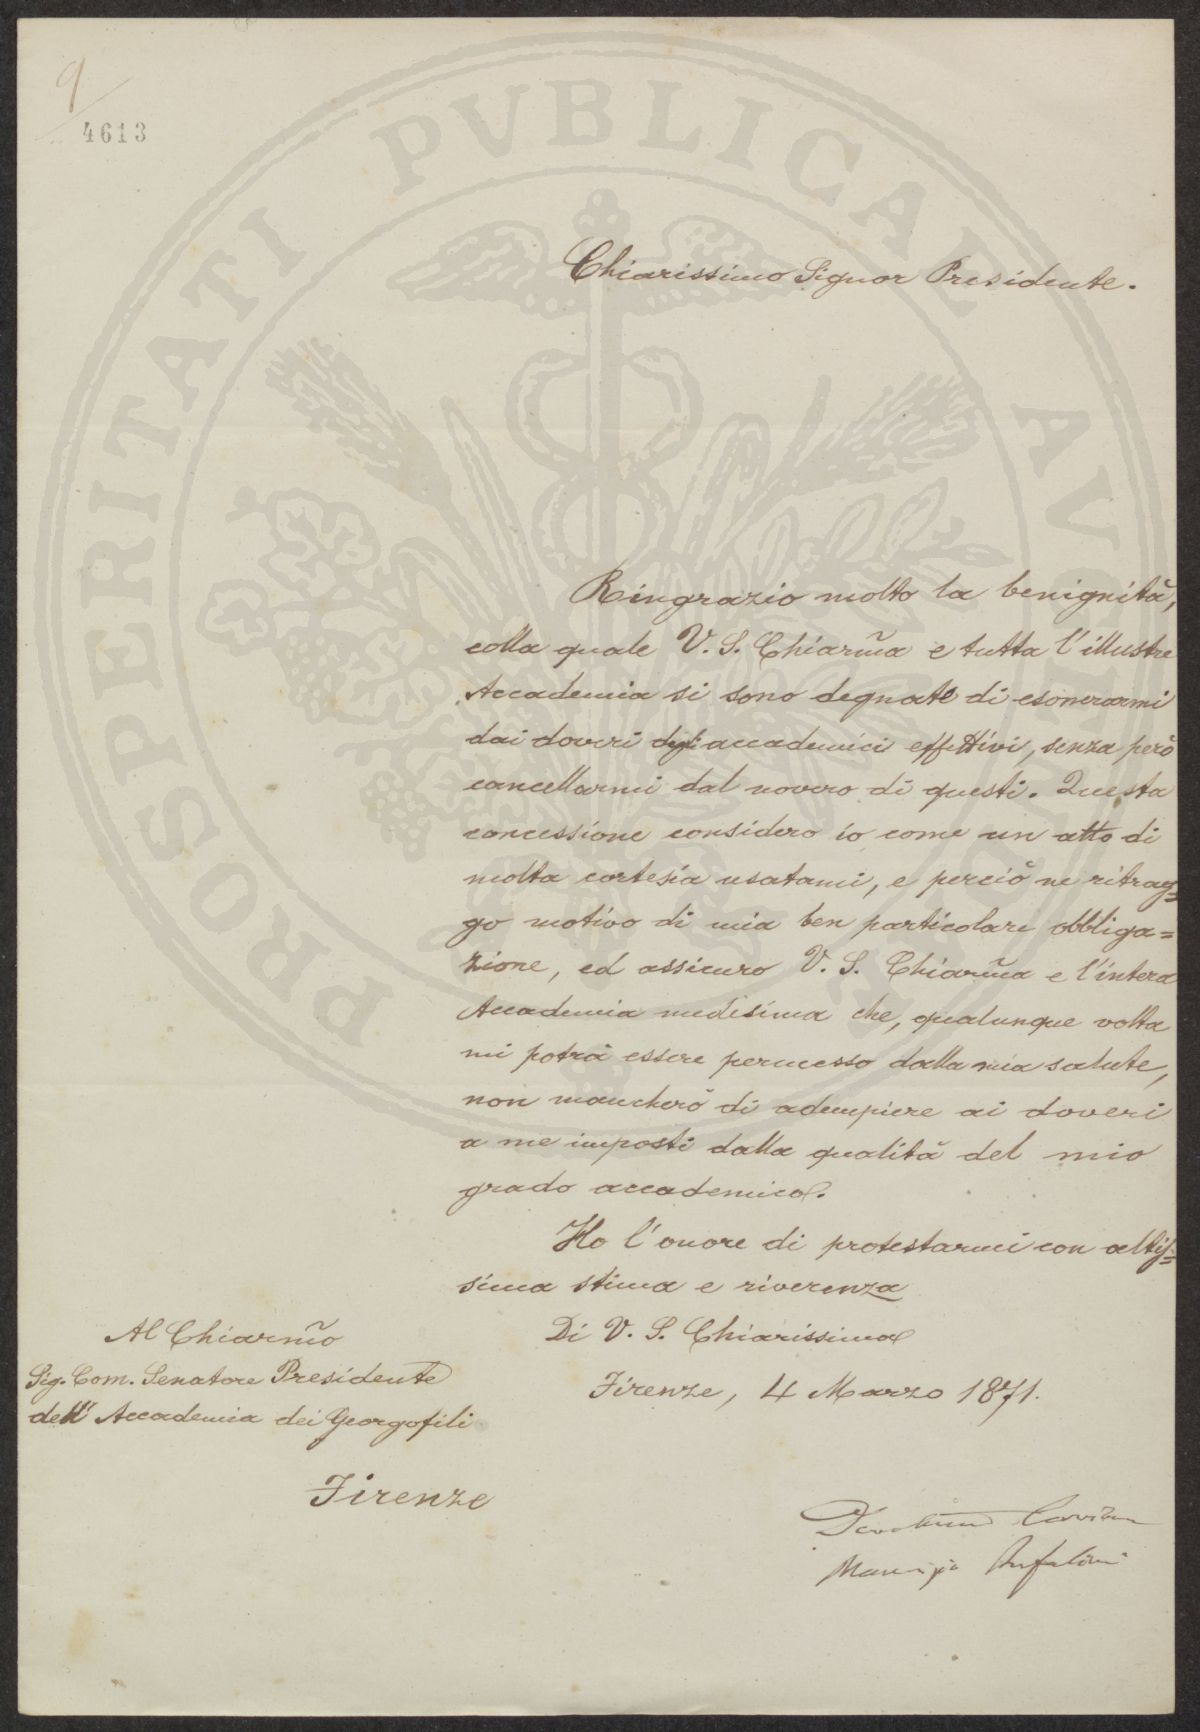 9
4613
PROSPERITATI PVBLICAE AVGENDAE
Chiarissimo Signor Presidente.
Ringrazio molto la benignità,
colla quale V. S. Chiarm̃a e tutta l'illustre
Accademia si sono degnate di esonerarmi
dai doveri degli accademici effettivi, senza però
cancellarmi dal novero di questi. Questa
concessione considero io come un atto di
molta cortesia usatami, e perciò ne ritrag=
go motivo di mia ben particolare obbliga=
zione, ed assicuro V. S. Chiarm̃a e l'intera
Accademia medesima che, qualunque volta
mi potrà essere permesso dalla mia salute,
non mancherò di adempiere ai doveri
a me imposti dalla qualità del mio
grado accademico.
Ho l'onore di protestarmi con altis=
sima stima e riverenza
Di V. S. Chiarissima
Firenze, 4 Marzo 1871.
Al Chiarm̃o
Sig. Com. Senatore Presidente
dell' Accademia dei Georgofili
Firenze
Maurizio Bufalini